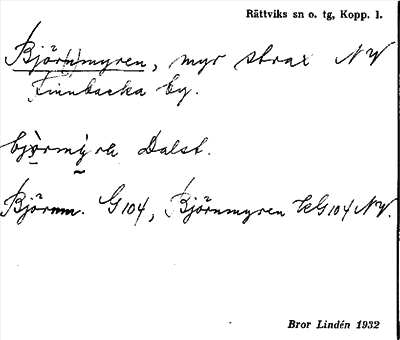 Rättviks sn o. tg, Kopp. l.
Björ(n)myren, myr strax NV
Finnbacka by.
Dalst.
Björnm. G104, Björnmyren G104 NV.
Bror Lindén 1932